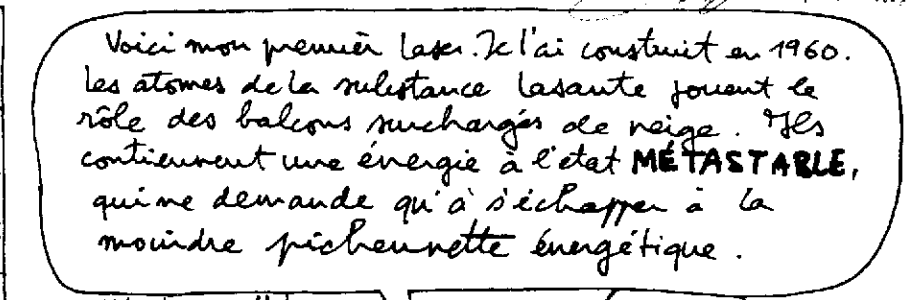 Voici mon premier laser. Je l'ai construit en 1960.
Les atomes de la substance lasante jouent le
rôle des balcons surchargés de neige. Ils
contiennent une énergie à l'état MÉTASTABLE,
qui ne demande qu'à s'échapper à la
moindre pichenette énergétique.